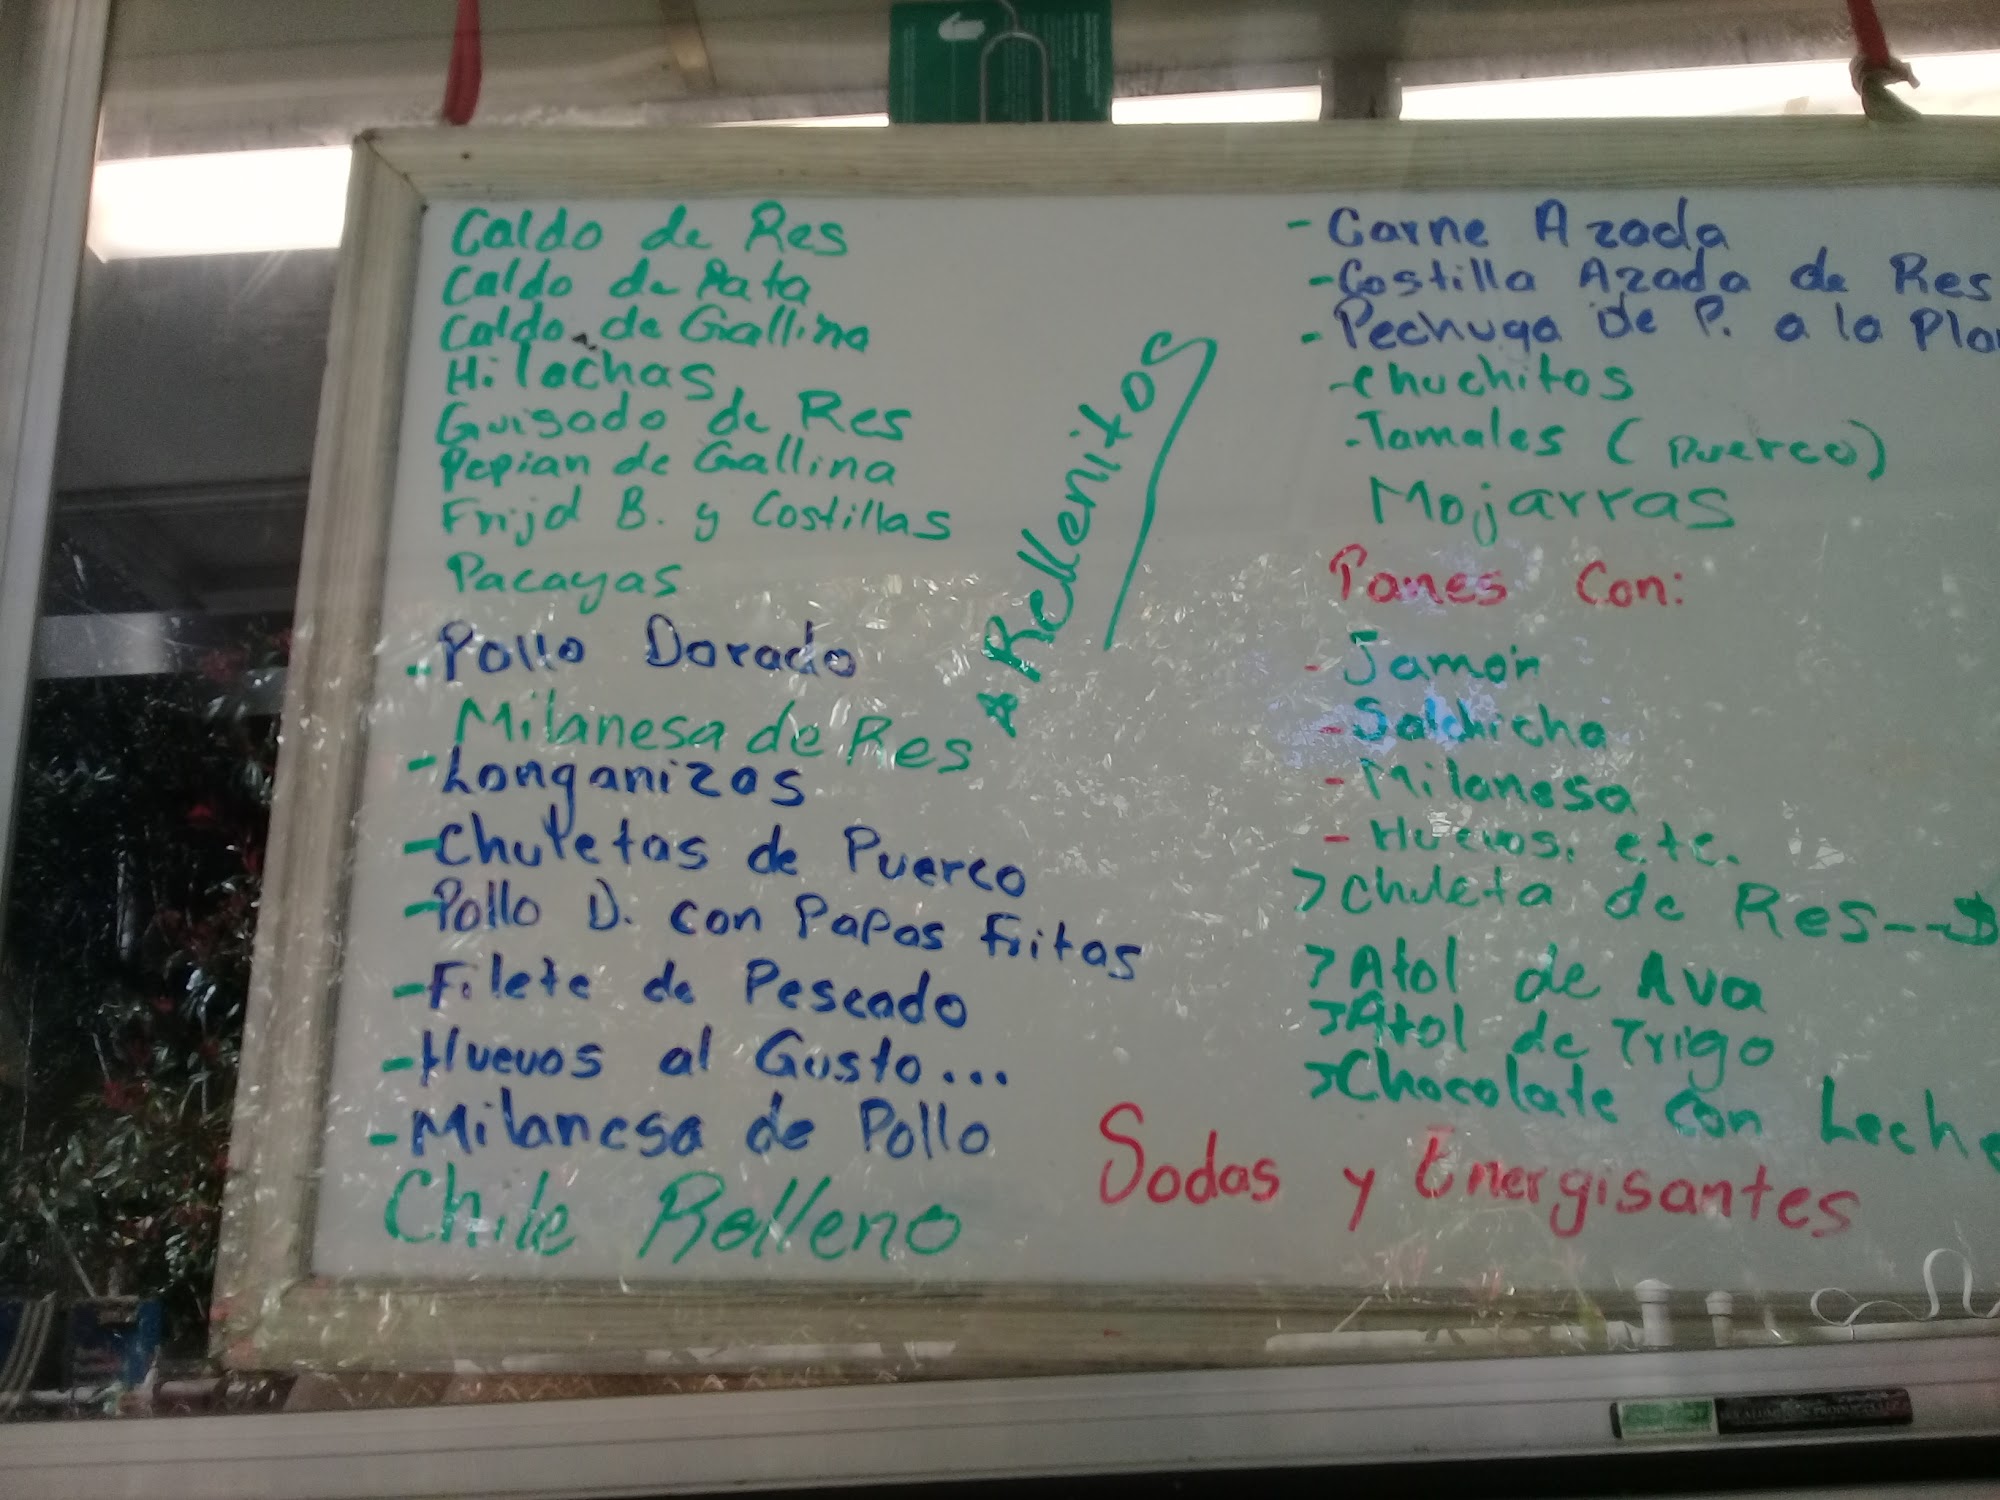 Caldo de Res
Caldo de Pata
Caldo de Gallina
Hilachas
Guisado de Res
Pepian de Gallina
Frijol B. y Costillas
Pacayas
- Pollo Dorado
Milanesa de Res
- Longanizas
- Chuletas de Puerco
- Pollo D. con Papas Fritas
- Filete de Pescado
- Huevos al Gusto...
- Milanesa de Pollo
Chile Relleno
* Rellenitos
- Carne Azada
- Costilla Azada de Res
- Pechuga de P. a la Pla
- Chuchitos
- Tamales (Puerco)
Mojarras
Panes Con:
- Jamón
- Salchicha
- Milanesa
- Huevos. etc.
> Chuleta de Res--
> Atol de Ava
> Atol de Trigo
> Chocolate con Leche
Sodas y Energisantes